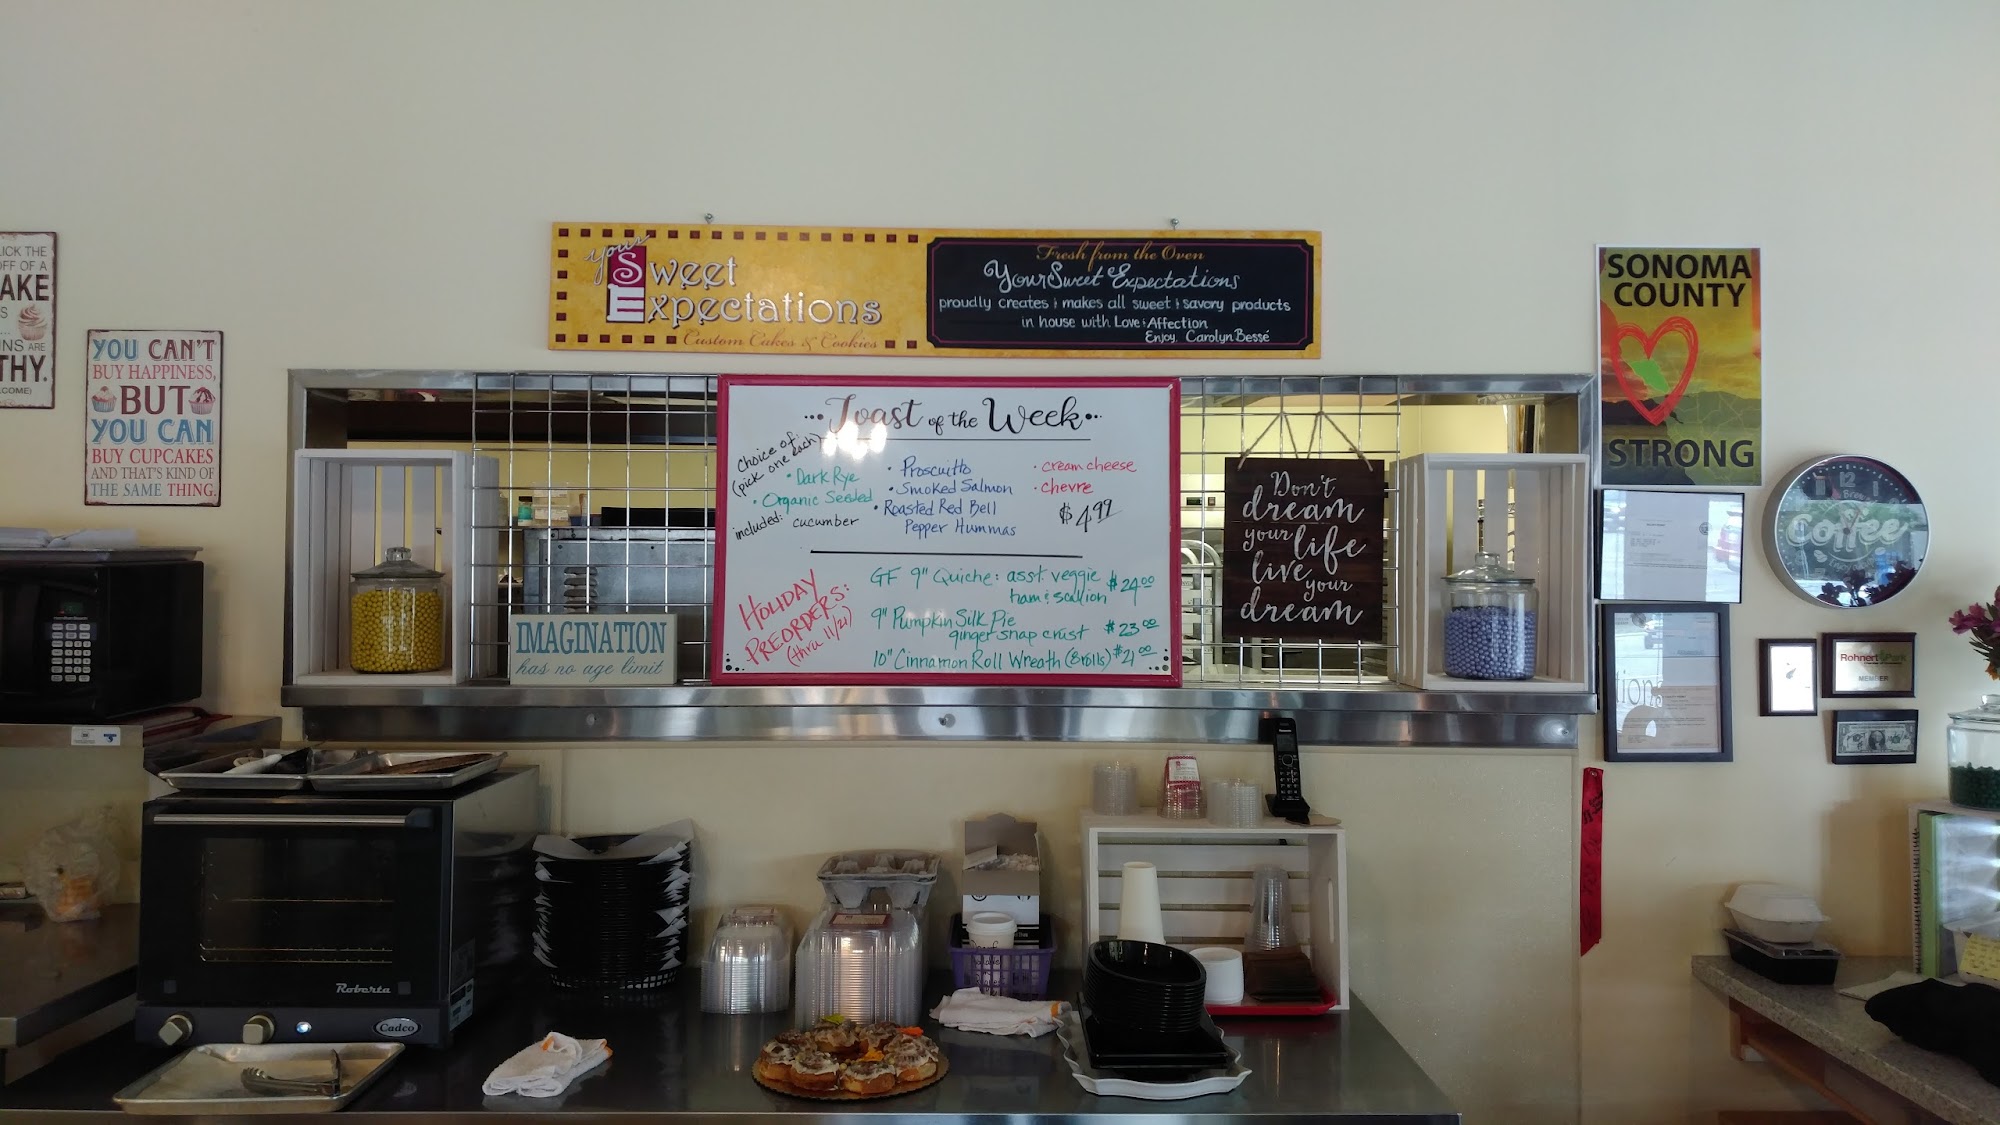 LICK THE
OFF OF A
AKE
INS ARE
THY.
COME)
YOU CAN'T
BUY HAPPINESS,
BUT
YOU CAN
BUY CUPCAKES
AND THAT'S KIND OF
THE SAME THING.
your
Sweet
Expectations
Custom Cakes & Cookies
Fresh from the Oven
Your Sweet Expectations
proudly creates & makes all sweet & savory products
in house with Love & Affection
Enjoy, Carolyn Bessé
Toast of the Week
Choice of:
(pick one each)
• Dark Rye
• Organic Seeded
included: cucumber
• Proscuitto
• Smoked Salmon
• Roasted Red Bell
Pepper Hummas
• cream cheese
• chevre
$4.99
HOLIDAY
PREORDERS:
(thru 11/21)
GF 9" Quiche: asst. veggie
ham & scallion $24.00
9" Pumpkin Silk Pie
ginger snap crust $23.00
10" Cinnamon Roll Wreath (8 rolls) $21.00
IMAGINATION
has no age limit
Don't
dream
your life
live your
dream
SONOMA
COUNTY
STRONG
12
Coffee
Rohnert Park
MEMBER
Roberta
Cadco